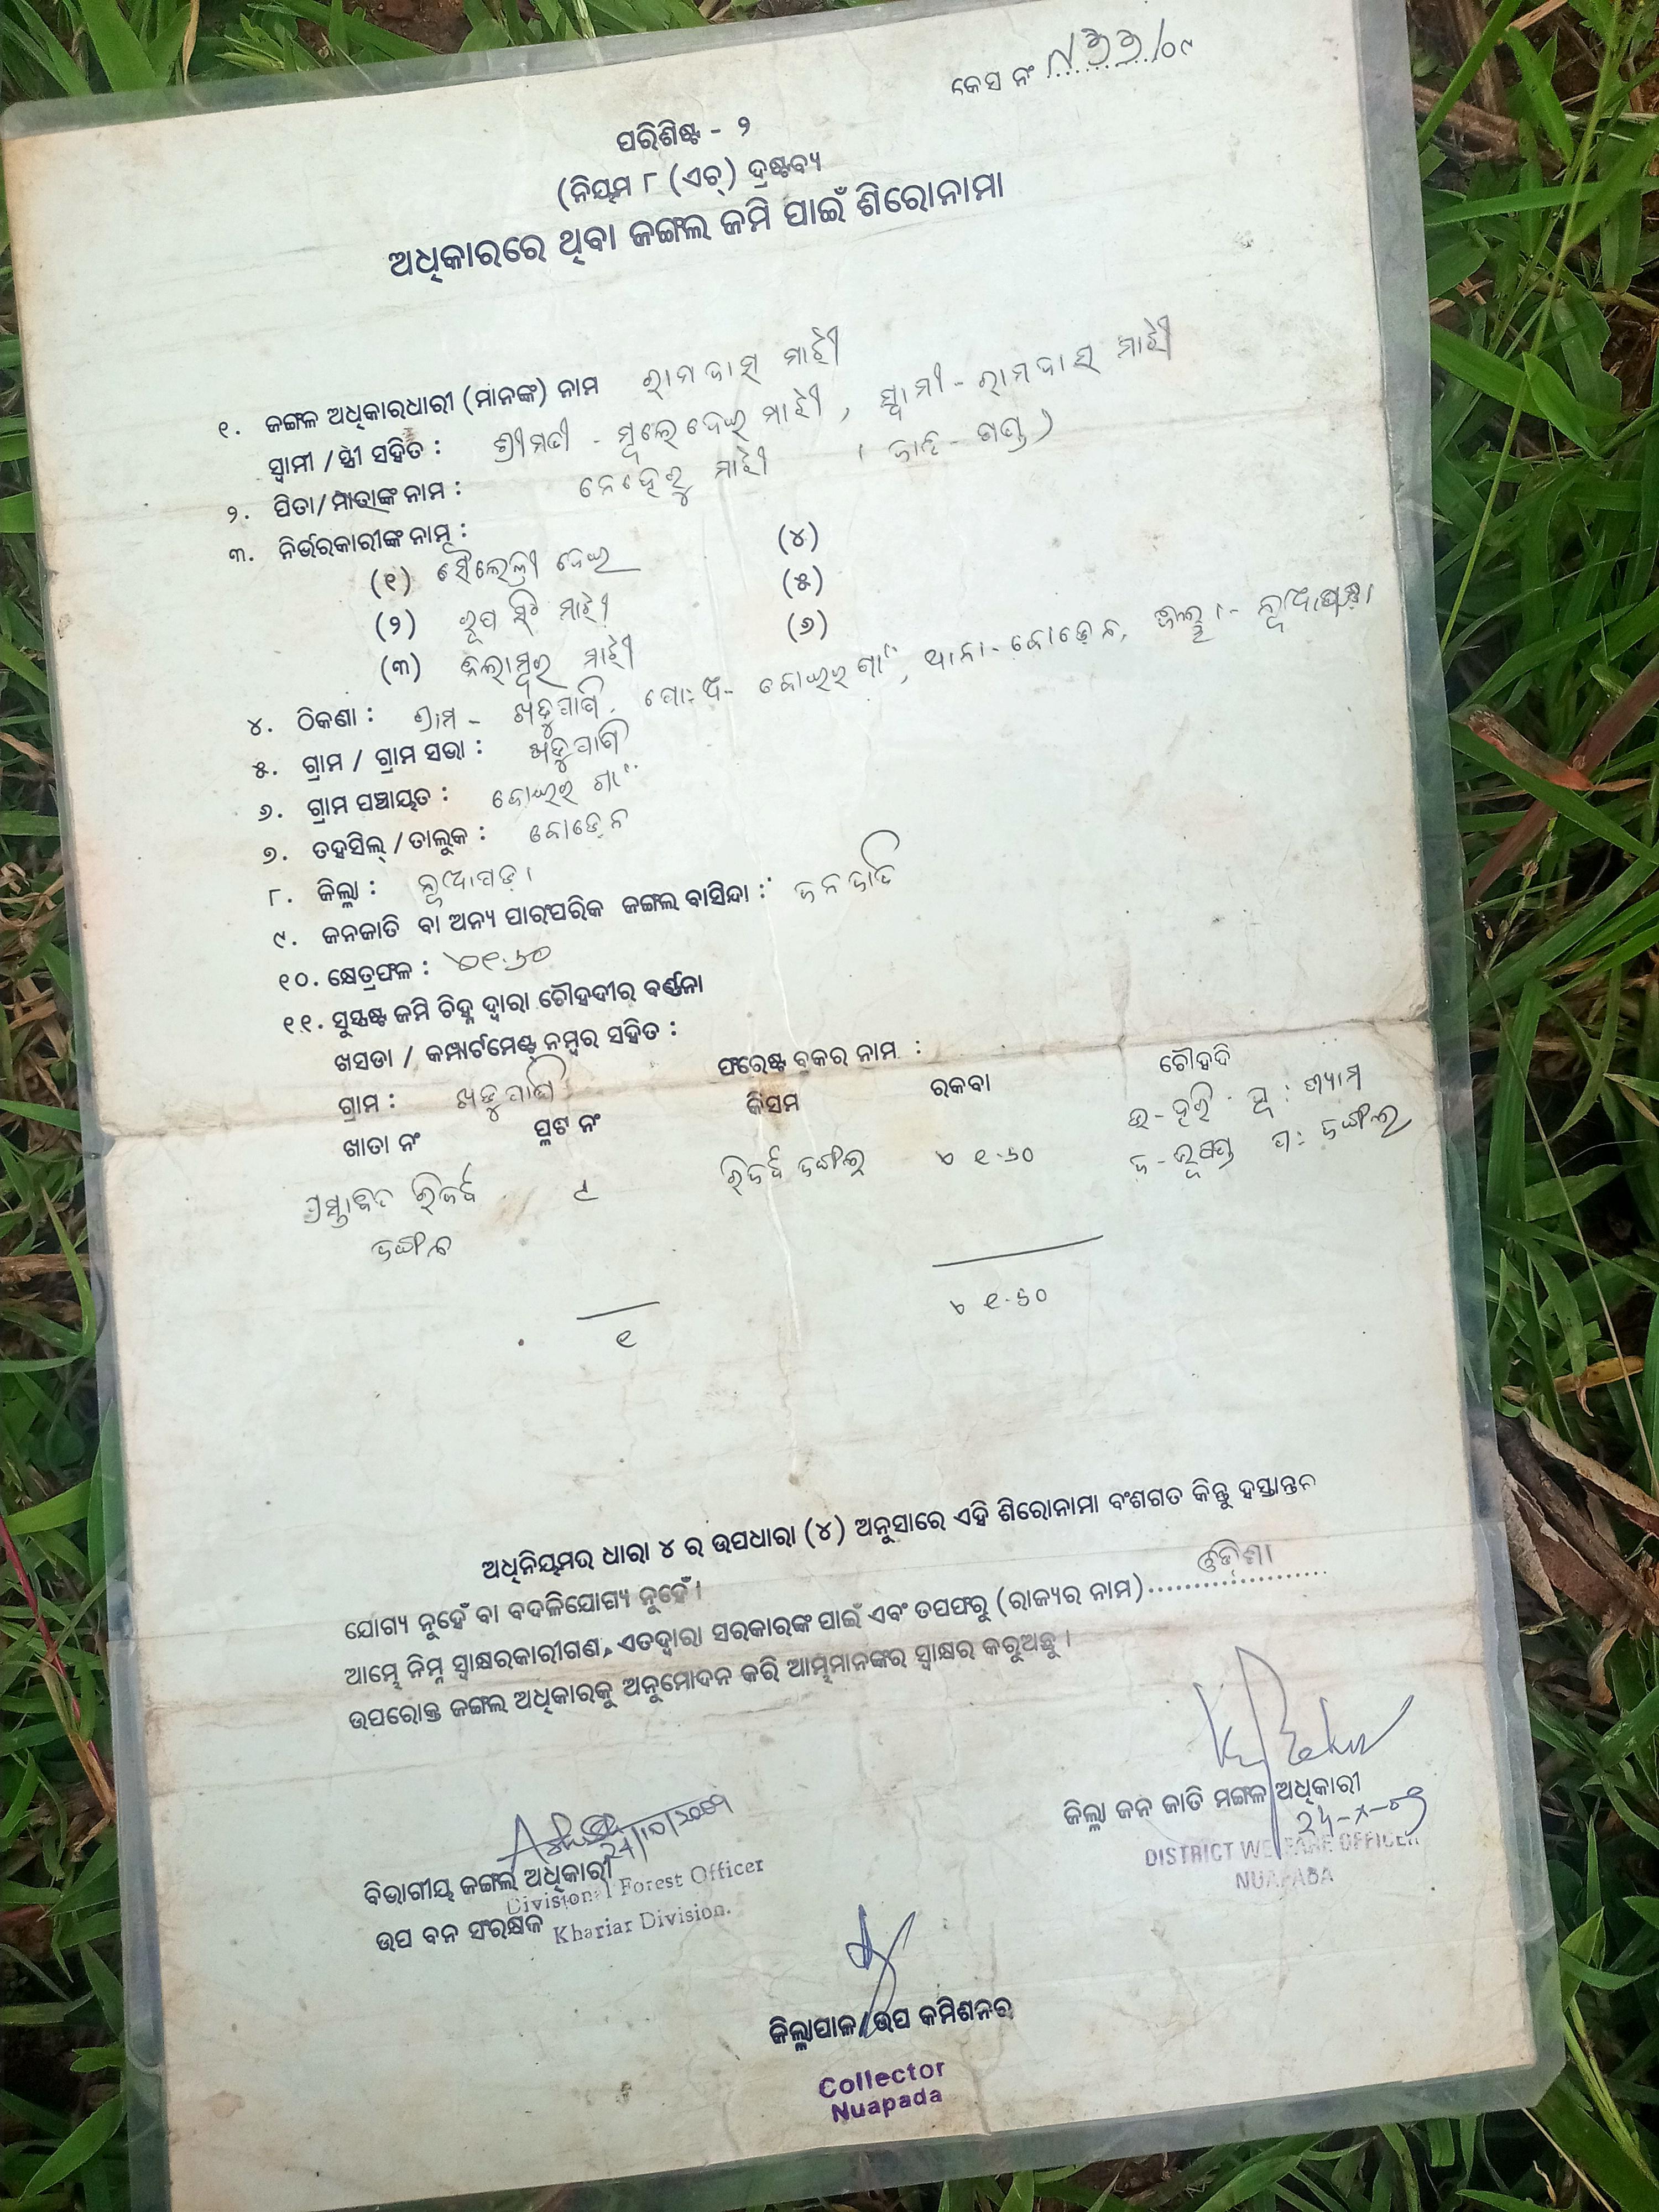 କେସ ନଂ ୮୨୨/୦୯
ପରିଶିଷ୍ଟ - ୨
(ନିୟମ ୮ (ଏଚ୍) ଦ୍ରଷ୍ଟବ୍ୟ
ଅଧିକାରରେ ଥିବା ଜଙ୍ଗଲ ଜମି ପାଇଁ ଶିରୋନାମା
୧. ଜଙ୍ଗଲ ଅଧିକାରଧାରୀ (ମାନଙ୍କ) ନାମ ରାମଦାସ ମାଝୀ
ସ୍ୱାମୀ / ସ୍ତ୍ରୀ ସହିତ : ଶ୍ରୀମତୀ - ମାଝୀ, ସ୍ୱାମୀ - ରାମଦାସ ମାଝୀ
୨. ପିତା/ମାତାଙ୍କ ନାମ : ନେହେରୁ ମାଝୀ (ଜାତି - ଗଣ୍ଡ)
୩. ନିର୍ଭରକାରୀଙ୍କ ନାମ :
(୧) ଦେଇ (୪)
(୨) ମାଝୀ (୫)
(୩) ମାଝୀ (୬)
୪. ଠିକଣା : ଗ୍ରାମ - ଖଡୁପାଗି, ପୋ:ଅ- ଥାନା - ଜିଲ୍ଲା - ନୂଆପଡ଼ା
୫. ଗ୍ରାମ / ଗ୍ରାମ ସଭା : ଖଡୁପାଗି
୬. ଗ୍ରାମ ପଞ୍ଚାୟତ :
୭. ତହସିଲ୍ / ତାଲୁକ : ବୋଡ଼େନ
୮. ଜିଲ୍ଲା : ନୂଆପଡ଼ା
୯. ଜନଜାତି ବା ଅନ୍ୟ ପାରଂପରିକ ଜଙ୍ଗଲ ବାସିନ୍ଦା : ଜନଜାତି
୧୦. କ୍ଷେତ୍ରଫଳ : ୧.୬୦
୧୧. ସୁସ୍ପଷ୍ଟ ଜମି ଚିହ୍ନ ଦ୍ୱାରା ଚୌହଦୀର ବର୍ଣ୍ଣନା
ଖସଡା / କମ୍ପାର୍ଟମେଣ୍ଟ ନମ୍ବର ସହିତ :
ଗ୍ରାମ : ଖଡୁପାଗି ଫରେଷ୍ଟ ବ୍ଲକର ନାମ :
ଖାତା ନଂ ପ୍ଲଟ ନଂ କିସମ ରକବା ଚୌହଦି
ପ୍ରସ୍ତାବିତ ରିଜର୍ଭ ୯ ରିଜର୍ଭ ଜଙ୍ଗଲ ୧.୬୦ ଉ - ପୂ : ଶ୍ୟାମ
ଜଙ୍ଗଲ ଦ - ପ : ଜଙ୍ଗଲ
୧ ୧.୬୦
ଅଧିନିୟମର ଧାରା ୪ ର ଉପଧାରା (୪) ଅନୁସାରେ ଏହି ଶିରୋନାମା ବଂଶଗତ କିନ୍ତୁ ହସ୍ତାନ୍ତର
ଯୋଗ୍ୟ ନୁହେଁ ବା ବଦଳିଯୋଗ୍ୟ ନୁହେଁ।
ଆମ୍ଭେ ନିମ୍ନ ସ୍ୱାକ୍ଷରକାରୀଗଣ, ଏତଦ୍ୱାରା ସରକାରଙ୍କ ପାଇଁ ଏବଂ ତପଫରୁ (ରାଜ୍ୟର ନାମ) ଓଡ଼ିଶା
ଉପରୋକ୍ତ ଜଙ୍ଗଲ ଅଧିକାରକୁ ଅନୁମୋଦନ କରି ଆମ୍ଭମାନଙ୍କର ସ୍ୱାକ୍ଷର କରୁଅଛୁ।
ଜିଲ୍ଲା ଜନ ଜାତି ମଙ୍ଗଳ ଅଧିକାରୀ
DISTRICT WELFARE OFFICER
NUAPADA
ବିଭାଗୀୟ ଜଙ୍ଗଲ ଅଧିକାରୀ
Divisional Forest Officer
ଉପ ବନ ସଂରକ୍ଷକ Khariar Division.
ଜିଲ୍ଲାପାଳ/ଉପ କମିଶନର
Collector
Nuapada